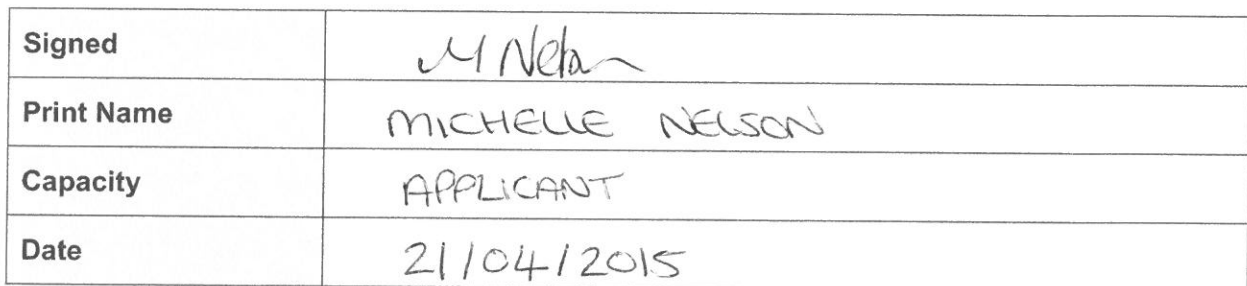 Signed M Nelson
Print Name MICHELLE NELSON
Capacity APPLICANT
Date 21/04/2015